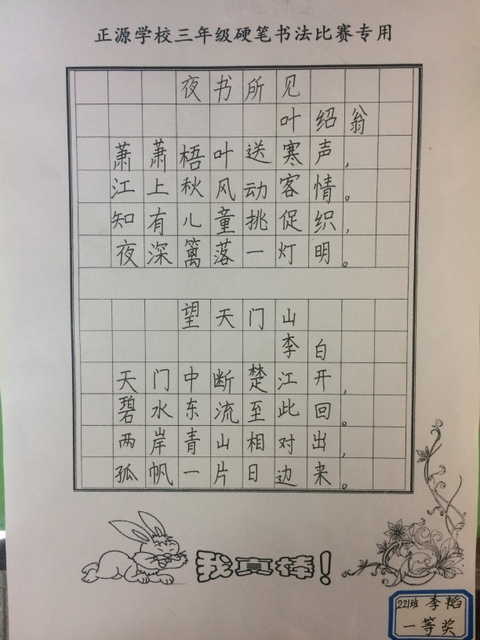 正源学校三年级硬笔书法比赛专用
夜书所见
叶绍翁
萧萧梧叶送寒声，
江上秋风动客情。
知有儿童挑促织，
夜深篱落一灯明。
望天门山
李白
天门中断楚江开，
碧水东流至此回。
两岸青山相对出，
孤帆一片日边来。
我真棒！
221班 李韬
一等奖